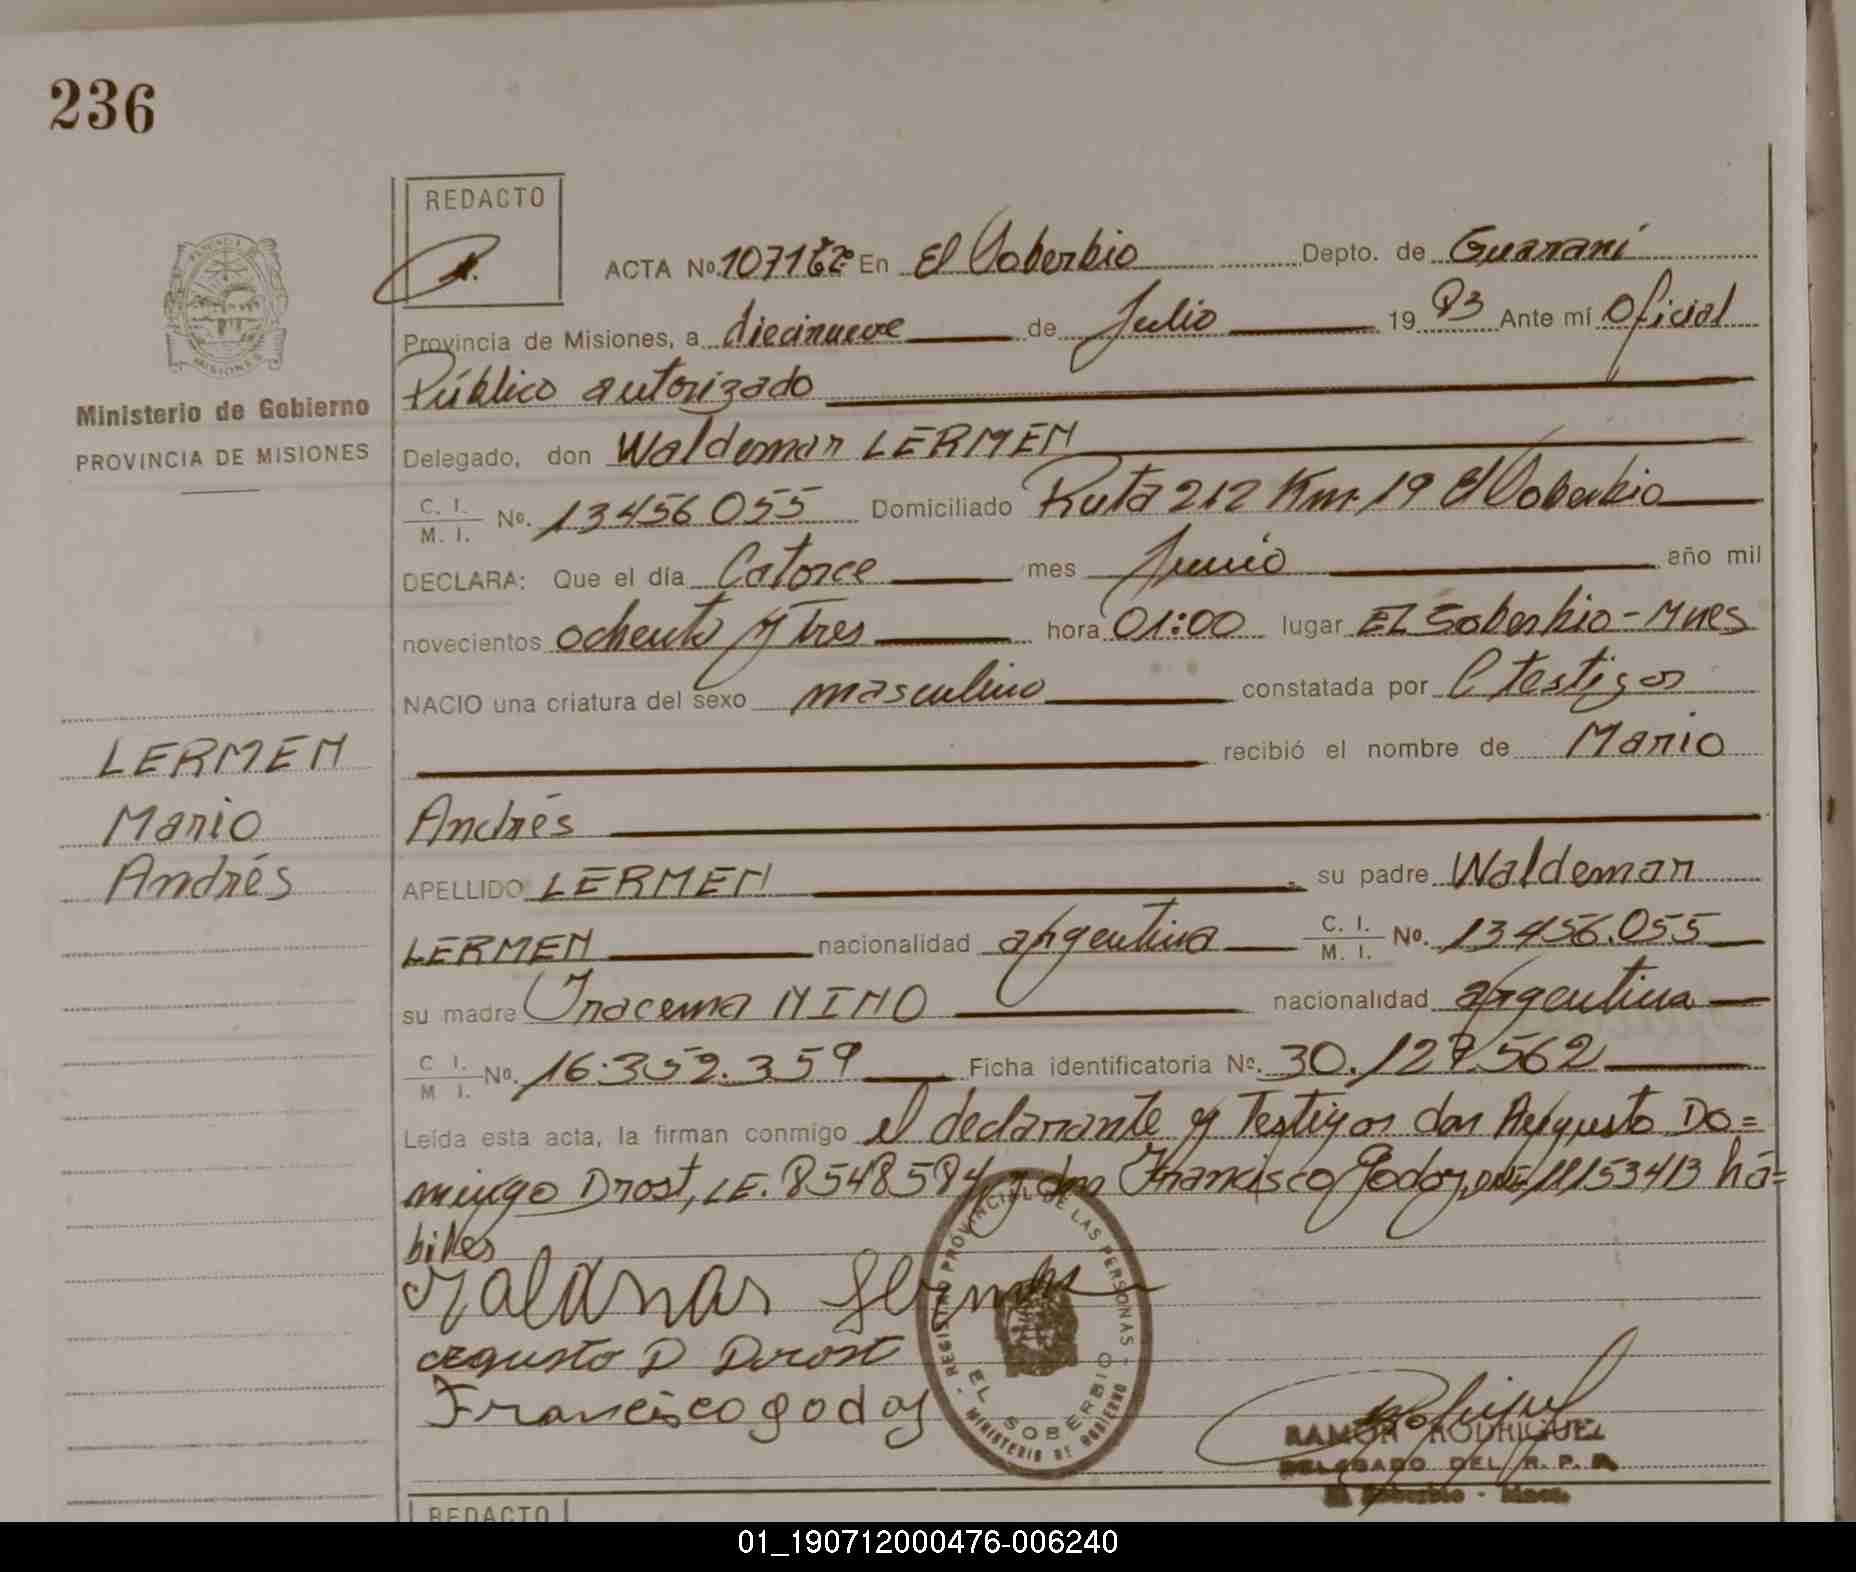 236
REDACTO
ACTA Nº. 107 En El Soberbio Depto. de Guaraní
Provincia de Misiones, a diecinueve de Julio 19 83 Ante mí Oficial
Público autorizado
Ministerio de Gobierno
PROVINCIA DE MISIONES
Delegado, don Waldemar LERMEN
C. I. M. I. Nº. 13456055 Domiciliado Ruta 212 Km. 19 El Soberbio
DECLARA: Que el día Catorce mes Junio año mil
novecientos ochenta y Tres hora 01:00 lugar EL Soberbio - Mnes
NACIO una criatura del sexo masculino constatada por C/testigos
recibió el nombre de Mario
LERMEN
Mario
Andrés
Andrés
APELLIDO LERMEN su padre Waldemar
LERMEN nacionalidad argentina C. I. M. I. Nº. 13456.055
su madre Iracema NINO nacionalidad argentina
C. I. M. I. Nº. 16.352.359 Ficha identificatoria Nº. 30.127.562
Leída esta acta, la firman conmigo el declarante y Testigos don Augusto Do=
mingo Drost, L.E. 8548584 y don Francisco Godoy, DNI 11153413 há=
biles
agusto D Drost
Francisco godoy
REGISTRO PROVINCIAL DE LAS PERSONAS
EL SOBERBIO
MINISTERIO DE GOBIERNO
RAMON RODRIGUEZ
DELEGADO DEL R. P. P.
El Soberbio - Mnes.
REDACTO
01_190712000476-006240